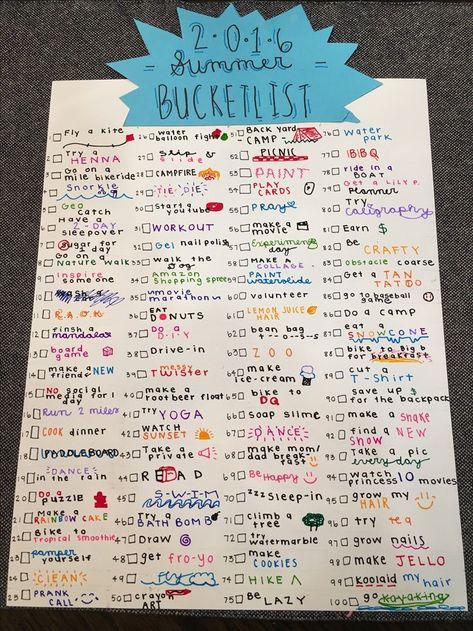 2·0·1·6
= Summer =
BUCKETLIST
1 Fly a kite
2 Try a HENNA
3 Go on a mile bikeride
4 Snorkle
5 Geo catch
6 Have a 2-DAY sleepover
7 sugar for a day
8 Go on a Nature walk
9 Inspire someone
10
11 R.A.O.K
12 finsh a mandala
13 board game
14 make a new friend
15 No social media for 1 day
16 Run 2 miles
17 COOK dinner
18 PADDLEBOARD
19 DANCE in the rain
20 Do a puzzle
21 Make a RAINBOW CAKE
22 Bike to tropical smoothie
23 pamper yourself
24 CLEAN
25 PRANK CALL
26 water balloon fight
27 slip & slide
28 CAMPFIRE
29 TIE DIE
30 Start a youtube
31 WORKOUT
32 Gel nail polish
33 walk the dog
34 Amazon shopping spree
35 movie marathon
36 EAT DONUTS
37 Do a D-I-Y
38 Drive-in
39 messy TWISTER
40 make a root beer float
41 try YOGA
42 WATCH SUNSET
43 Take a private
44 READ
45 S-W-I-M
46 Try a BATH BOMB
47 Draw
48 get fro-yo
49
50 crayon ART
51 BACK yard -CAMP-
52 PICNIC
53 PAINT
54 PLAY CARDS
55 PRAY
56 make a movie
57 Experiment day
58 Make a COLLAGE
59 PAINT watersslide
60 volunteer
61 LEMON JUICE HAIR
62 bean bag t-o-s-s
63 ZOO
64 make ice-cream
65 bike to DQ
66 soap slime
67 DANCE
68 make mom/dad breakfast
69 Be Happy
70 zzz sleep-in
71 climb a tree
72 try watermarble
73 make COOKIES
74 HIKE
75 Be LAZY
76 Water park
77 BBQ
78 ride in a BOAT
79 Get a Lily P. planner
80 Try caligraphy
81 Earn $
82 Be CRAFTY
83 obstacle coarse
84 Get a TAN TATOO
85 go to baseball game
86 Do a camp
87 eat a SNOWCONE
88 bike to Big b for breakfast
89 cut a T-shirt
90 save up $ for the backpack
91 make a shake
92 find a NEW show
93 Take a pic everyday
94 watch princess 10 movies
95 grow my
96 try tea
97 grow nails
98 make JELLO
99 koolaid my hair
100 go kayaking